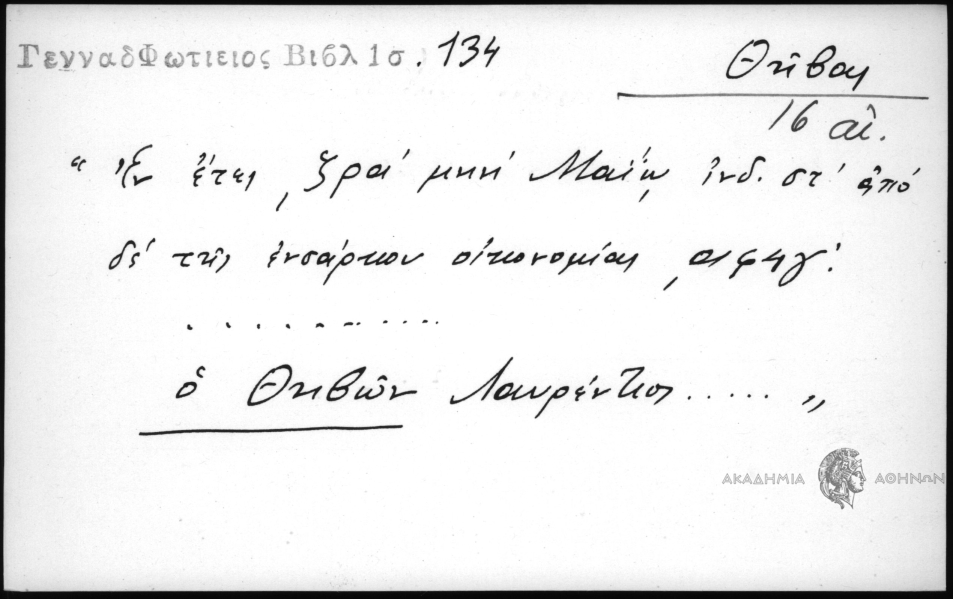 ΓενναδΦωτιειος Βιβλ 1σ. 134
Θῆβαι
16 αἰ.
“ Ἐν ἔτει ͵ζρά μηνί Μαΐῳ ἰνδ. στ́ ἀπό
δέ τῆς ἐνσάρκου οἰκονομίας ͵αφϟγ́.
. . . . . . . . . .
ὁ Θηβῶν Λαυρέντιος ..... „
ΑΚΑΔΗΜΙΑ ΑΘΗΝΩΝ